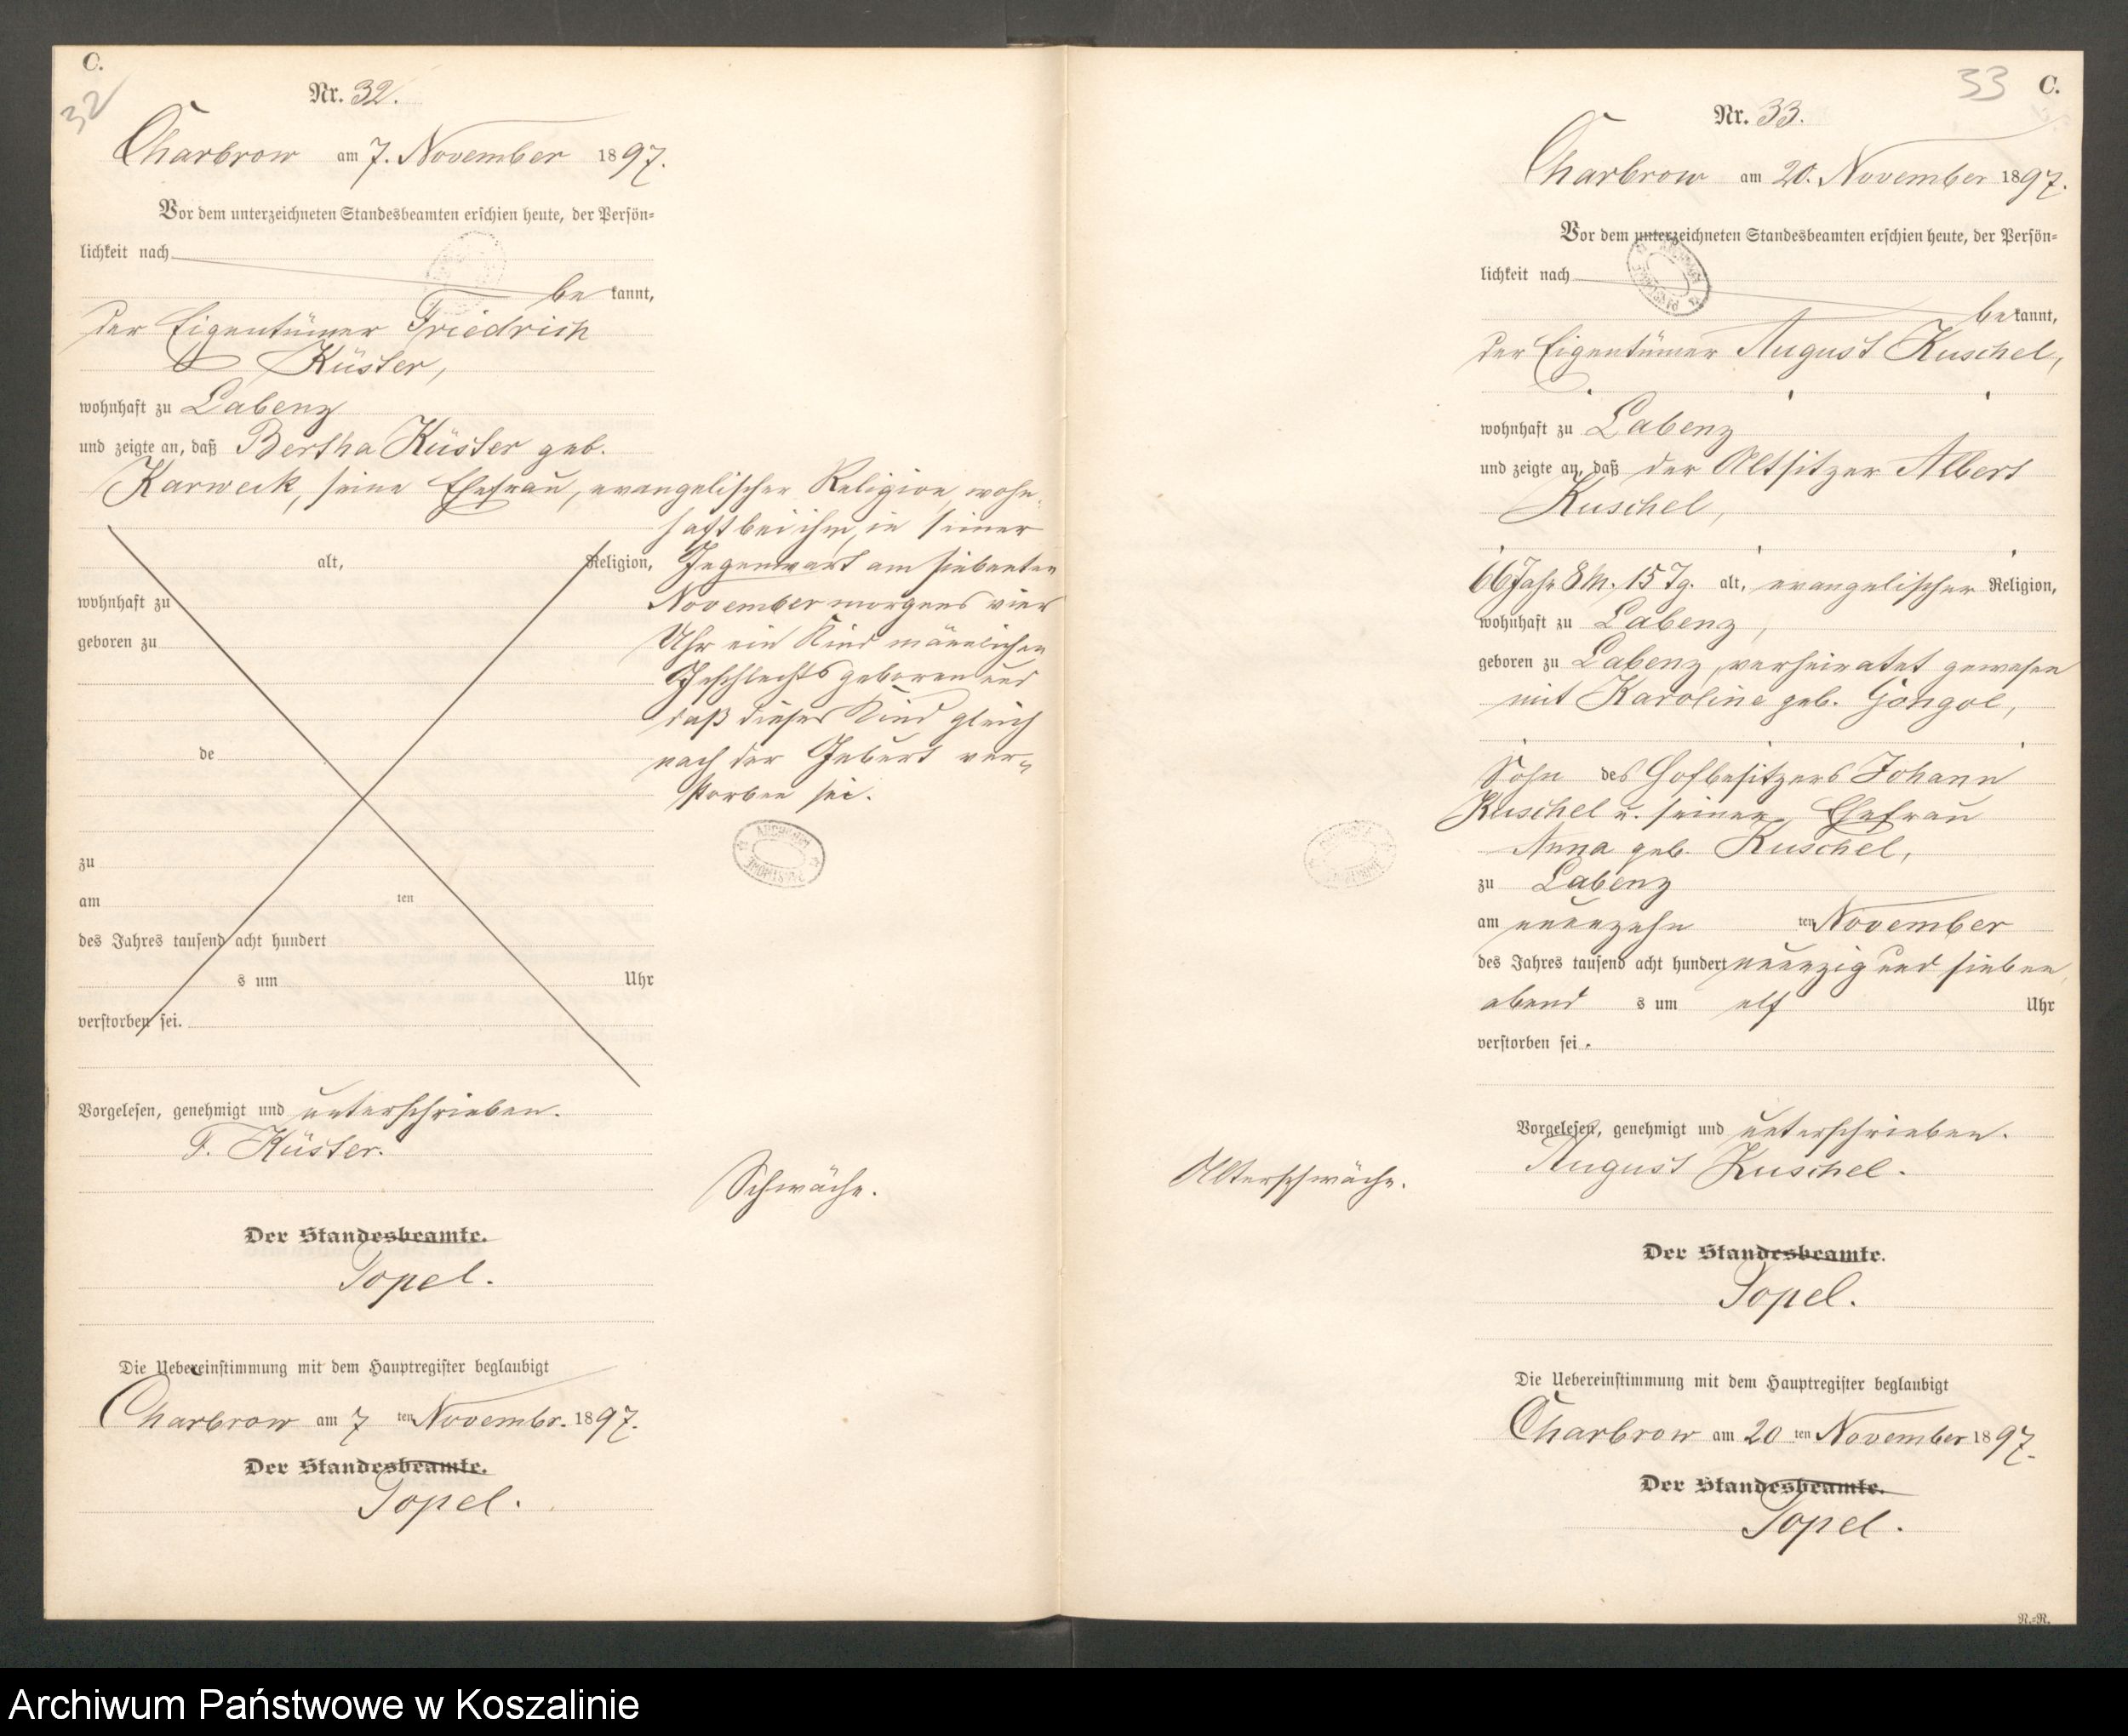 C.
32
Nr. 32.
Charbrow am 7. November 1897.
Vor dem unterzeichneten Standesbeamten erschien heute, der Persön-
lichkeit nach
be kannt,
der Eigentümer Friedrich
Küster,
wohnhaft zu Labenz
und zeigte an, daß Bertha Küster geb.
Karweik, seine Ehefrau, evangelischer Religion, wohn-
haft bei ihm, in seiner
Gegenwart am siebenten
November morgens vier
Uhr ein Kind männlichen
Geschlechts geboren und
daß dieses Kind gleich
nach der Geburt ver-
storben sei.
alt, Religion,
wohnhaft zu
geboren zu
de
zu
am ten
des Jahres tausend acht hundert
s um Uhr
verstorben sei.
Vorgelesen, genehmigt und unterschrieben.
F. Küster.
Schwäche.
Der Standesbeamte.
Topel.
Die Uebereinstimmung mit dem Hauptregister beglaubigt
Charbrow am 7 ten Novembr. 1897.
Der Standesbeamte.
Topel.
33 C.
Nr. 33.
Charbrow am 20. November 1897.
Vor dem unterzeichneten Standesbeamten erschien heute, der Persön-
lichkeit nach
be kannt,
der Eigentümer August Kuschel,
wohnhaft zu Labenz
und zeigte an, daß der Altsitzer Albert
Kuschel,
66 Jahr 8 M. 15 Tg. alt, evangelischer Religion,
wohnhaft zu Labenz,
geboren zu Labenz, verheiratet gewesen
mit Karoline geb. Gongol,
Sohn des Hofbesitzers Johann
Kuschel u. seiner Ehefrau
Anna geb. Kuschel,
zu Labenz
am neunzehn ten November
des Jahres tausend acht hundert neunzig und sieben,
abend s um elf Uhr
verstorben sei.
Vorgelesen, genehmigt und unterschrieben.
August Kuschel.
Alterschwäche.
Der Standesbeamte.
Topel.
Die Uebereinstimmung mit dem Hauptregister beglaubigt
Charbrow am 20 ten November 1897.
Der Standesbeamte.
Topel.
R.-R.
Archiwum Państwowe w Koszalinie